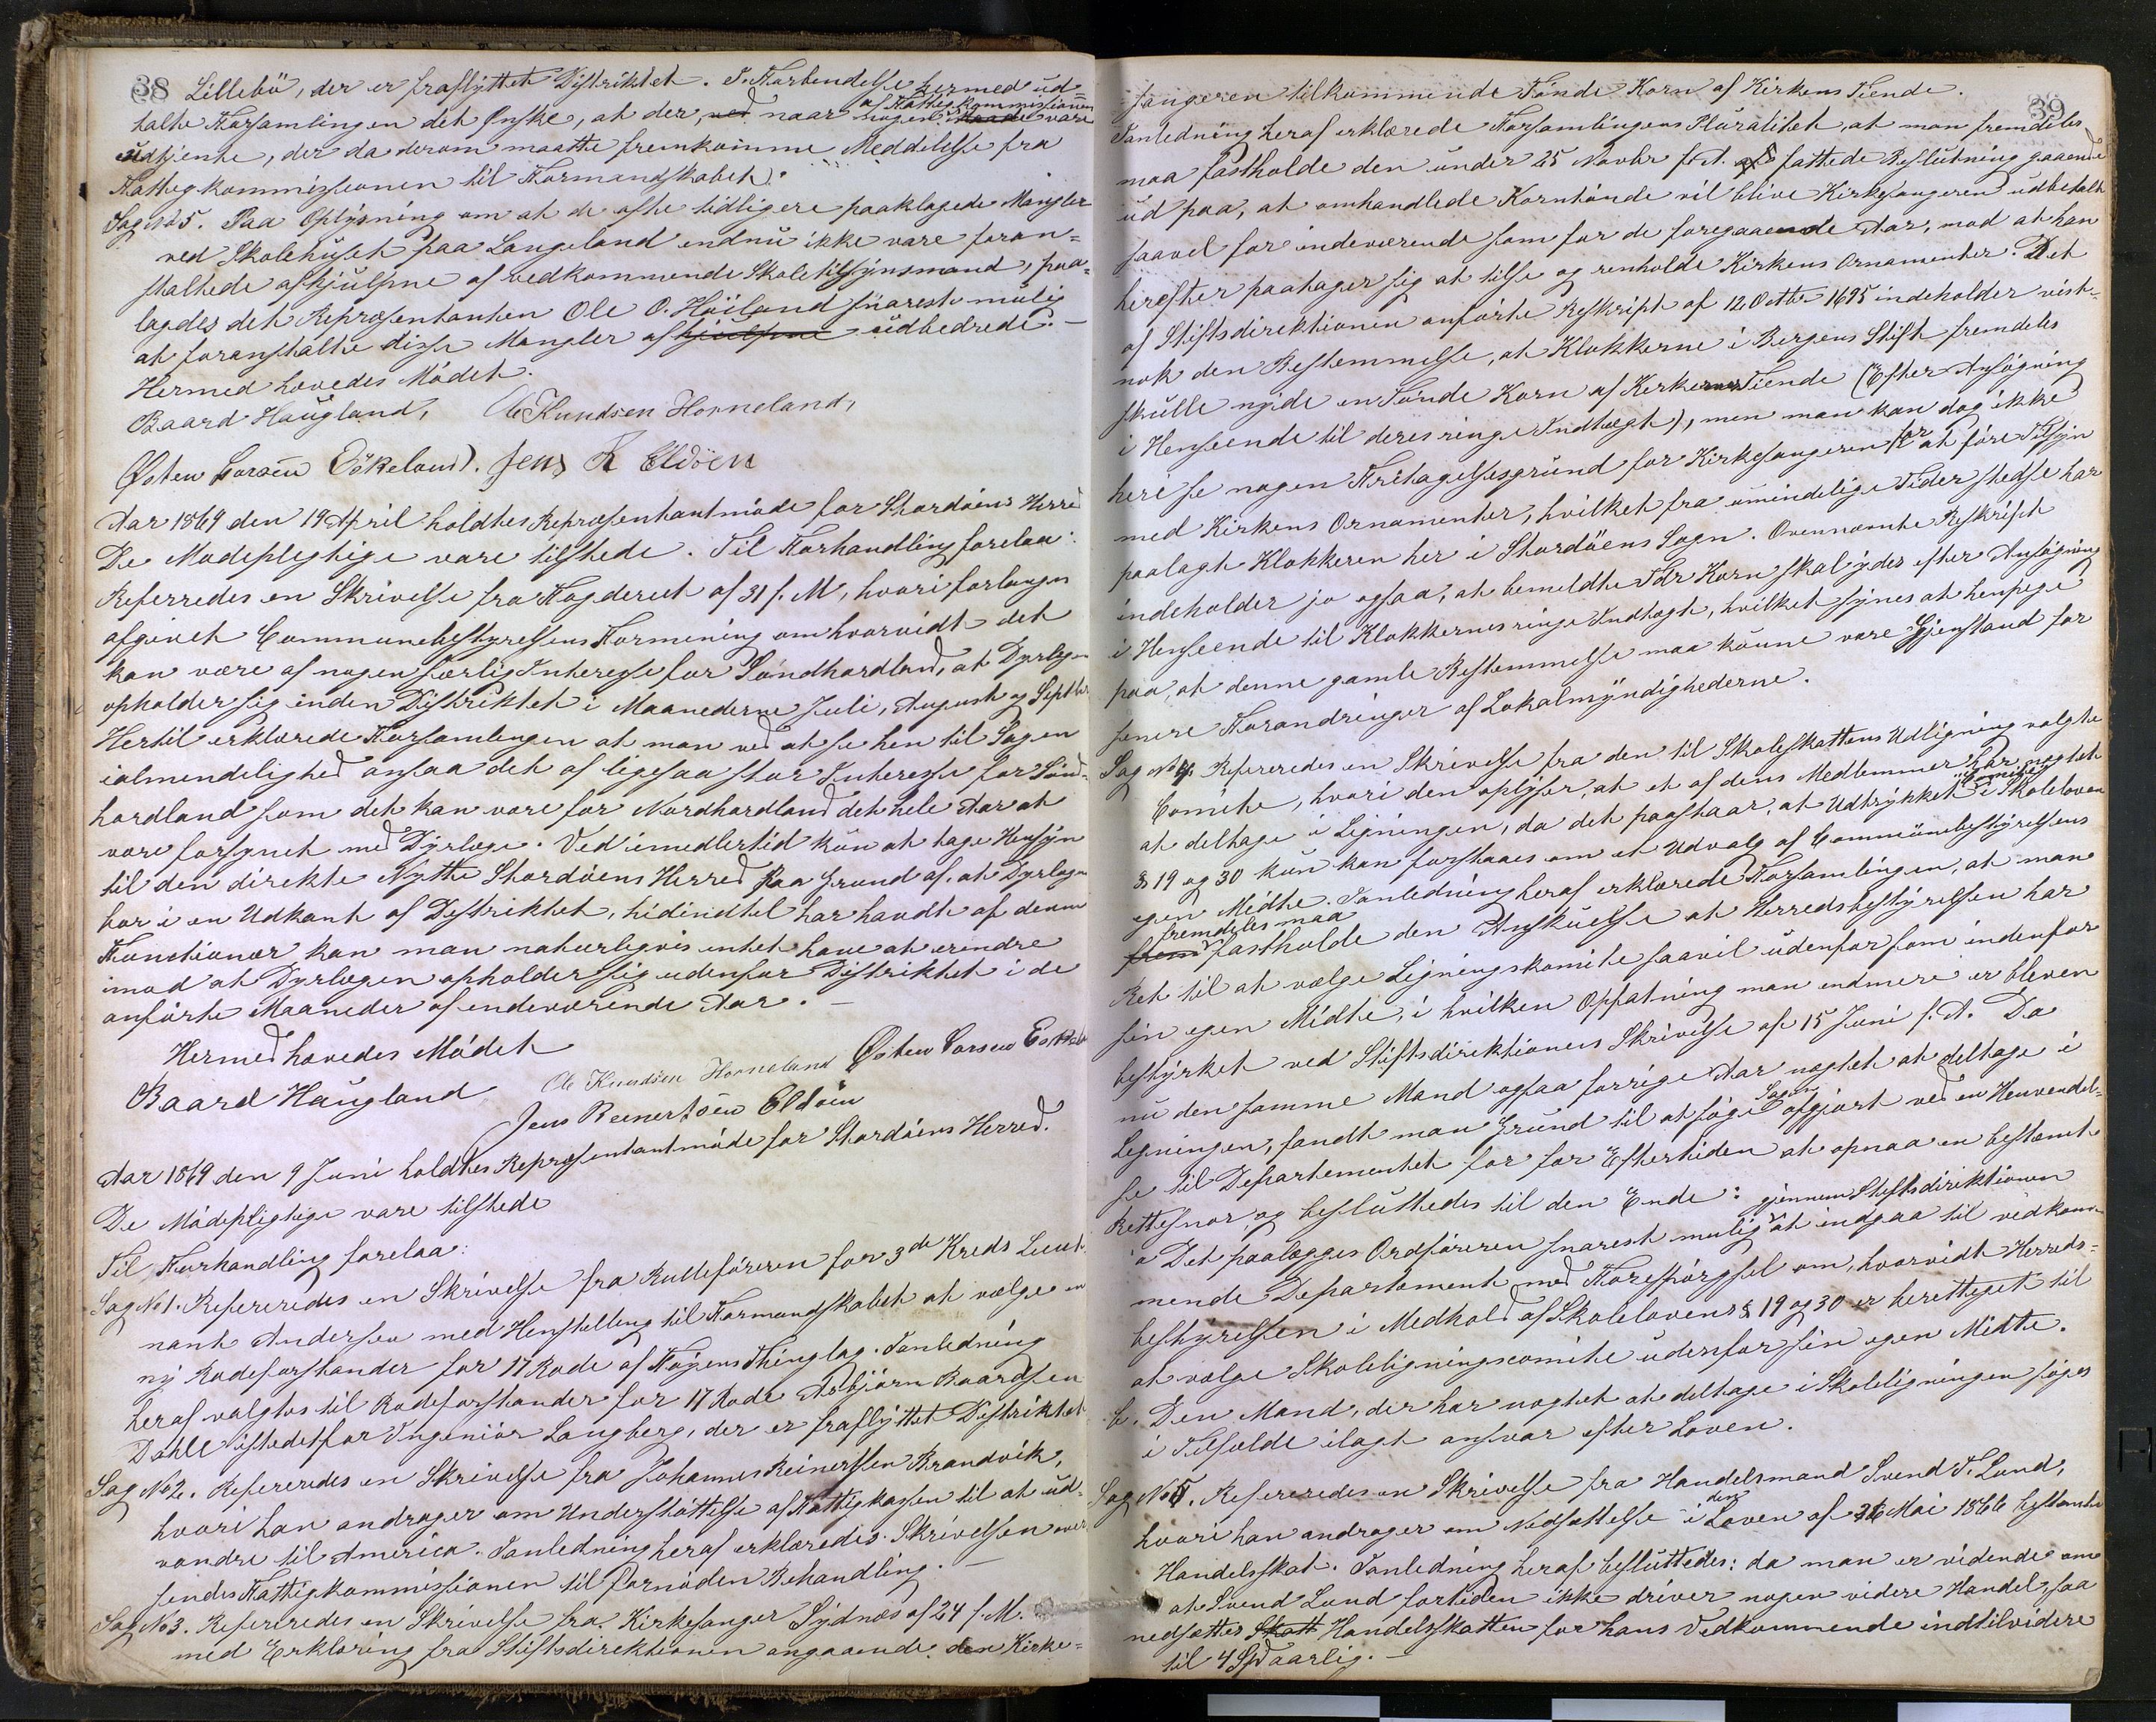 38
Lillebö, der er fraflyttet Distriktet. I Forbindelse hermed ud-
talte Forsamlingen det Ønske, at der, ved naar nogen af Fattigkommissionen vare
udtjente, der da derom maatte fremkomme Meddelelse fra
Fattigkommissionen til Formandskabet.
Sag No 5. Paa Oplysning om at de ofte tidligere paaklagede Mangler
ved Skolehuset paa Langeland endnu ikke vare foran-
staltede afhjulpne af vedkommende Skoletilsynsmand, paa-
lagdes det Repræsentanten Ole O. Høiland snarest mulig
at foranstalte disse Mangler afhjulpne udbedrede. –
Hermed hævedes Mödet.
Baard Haugland, O Knudsen Horneland,
Østen Larsen Eskeland. Jens R Eldöen
Aar 1869 den 19 April holdtes Repræsentantmöde for Stordöens Herred
De Mödepligtige vare tilstede. Til Forhandling forelaa:
Referredes en Skrivelse fra Fogderiet af 31 f. M, hvori forlanges
afgivet Communebestyrelsens Formening om hvorvidt det
kan være af nogen særlig Interesse for Söndhordland, at Dyrlægen
opholder sig inden Distriktet i Maanederne Juli, August og Septbr.
Hertil erklærede Forsamlingen at man ved at se hen til Sagen
ialmindelighed ansaa det af ligesaa stor Interesse for Sönd-
hordland som det kan være for Nordhordland det hele Aar at
være forsynet med Dyrlæge. Ved imedlertid kun at tage Hensyn
til den direkte Nytte Stordöens Herred paa Grund af, at Dyrlægen
bor i en Udkant af Distriktet, hidindtil har havdt af denne
Functionær, kan man naturligvis intet have at erindre
imod at Dyrlægen opholder sig udenfor Distriktet i de
anförte Maaneder af indeværende Aar. –
Hermed hævedes Mödet
Baard Haugland Ole Knudsen Horneland Østen Larsen Eskeland
Jens Reinertsen Eldöen
Aar 1869 den 9 Juni holdtes Repræsentantmöde for Stordöens Herred.
De Mödepligtige vare tilstede
Til Forhandling forelaa:
Sag No 1. Refereredes en Skrivelse fra Rulleföreren for 3de Kreds Lieut-
nant Andersen med Henstilling til Formandskabet at vælge en
ny Rodeforstander for 17 Rode af Föyens Thinglag. I Anledning
heraf valgtes til Rodeforstander for 17 Rode Asbjörn Baardsen
Dahle istedetfor Ingeniör Langberg, der er fraflyttet Distriktet.
Sag No 2. Refereredes en Skrivelse fra Johannes Reinertsen Brandvik,
hvori han andrager om Understöttelse af Fattigkassen til at ud-
vandre til America. I Anledning heraf erklæredes: Skrivelsen over-
sendes Fattigkommissionen til fornöden Behandling. –
Sag No 3. Refereredes en Skrivelse fra Kirkesanger Sydnæs af 24 f. M.
med Erklæring fra Stiftsdirektionen angaaende den Kirke-
39
sangeren tilkommende Tönde Korn af Kirkens Tiende.
I Anledning heraf erklærede Forsamlingens Pluralitet, at man fremdeles
maa fastholde den under 25 Novbr f. A. fattede Beslutning gaaende
ud paa, at omhandlede Korntönde vil blive Kirkesangeren udbetalt
saavel for indeværende som for de foregaaende Aar, mod at han
herefter paatager sig at tilse og renholde Kirkens Ornamenter. Det
af Stiftsdirektionen anförte Reskript af 12 Octbr 1695 indeholder vist-
nok den Bestemmelse, at Klokkerne i Bergens Stift fremdeles
skulle nyde en Tönde Korn af Kirkens Tiende (Efter Ansögning
i Henseende til deres ringe Indtægt), men man kan dog ikke
heri se nogen Fritagelsesgrund for Kirkesangeren for at före Tilsyn
med Kirkens Ornamenter, hvilket fra umindelige Tider stedse har
paalagt Klokkeren her i Stordöens Sogn. Ovennævnte Reskript
indeholder jo ogsaa, at bemeldte Tdr Korn skal ydes efter Ansögning
i Henseende til Klokkernes ringe Indtægt, hvilket synes at henpege
paa, at denne gamle Bestemmelse maa kunne være Gjenstand for
senere Forandringer af Lokalmyndighederne.
Sag No 4. Refereredes en Skrivelse fra den til Skoleskattens Udligning valgte
Comite, hvori den oplyser, at et af dens Medlemmer har nægtet
at deltage i Ligningen, da det paastaar, at Udtrykket "Comite" i Skoleloven
§ 19 og 30 kun kan forstaaes om et Udvalg af Communebestyrelsens
egen Midte. I Anledning heraf erklærede Forsamlingen, at man
frem fremdeles maa fastholde den Anskuelse at Herredsbestyrelsen har
Ret til at vælge Ligningskomite saavel udenfor som indenfor
sin egen Midte, i hvilken Opfatning man endmere er bleven
bestyrket ved Stiftsdirektionens Skrivelse af 15 Juni f. A. Da
nu den samme Mand ogsaa forrige Aar nægtet at deltage i
Ligningen, fandt man Grund til at söge Sagen afgjort ved en Henvendel-
se til Departementet for for Eftertiden at opnaa en bestemt
Rettesnor, og besluttedes til den Ende:
a Det paalægges Ordföreren snarest mulig gjennem Stiftsdirektionen at indgaa til vedkom-
mende Departement med Forespörgsel om, hvorvidt Herreds-
bestyrelsen i Medhold af Skolelovens § 19 og 30 er berettiget til
at vælge Skoleligningscomite udenfor sin egen Midte.
b. Den Mand, der har nægtet at deltage i Skoleligningen söges
i Tilfælde ilagt ansvar efter Loven.
Sag No 5. Refereredes en Skrivelse fra Handelsmand Svend T. Lund,
hvori han andrager om Nedsættelse i den i Loven af 26 Mai 1866 bestemte
Handelsskat. I Anledning heraf besluttedes: da man er vidende om
at Svend Lund fortiden ikke driver nogen videre Handel, saa
nedsættes Skatt Handelsskatten for hans Vedkommende indtilvidere
til 4 Spd aarlig. –